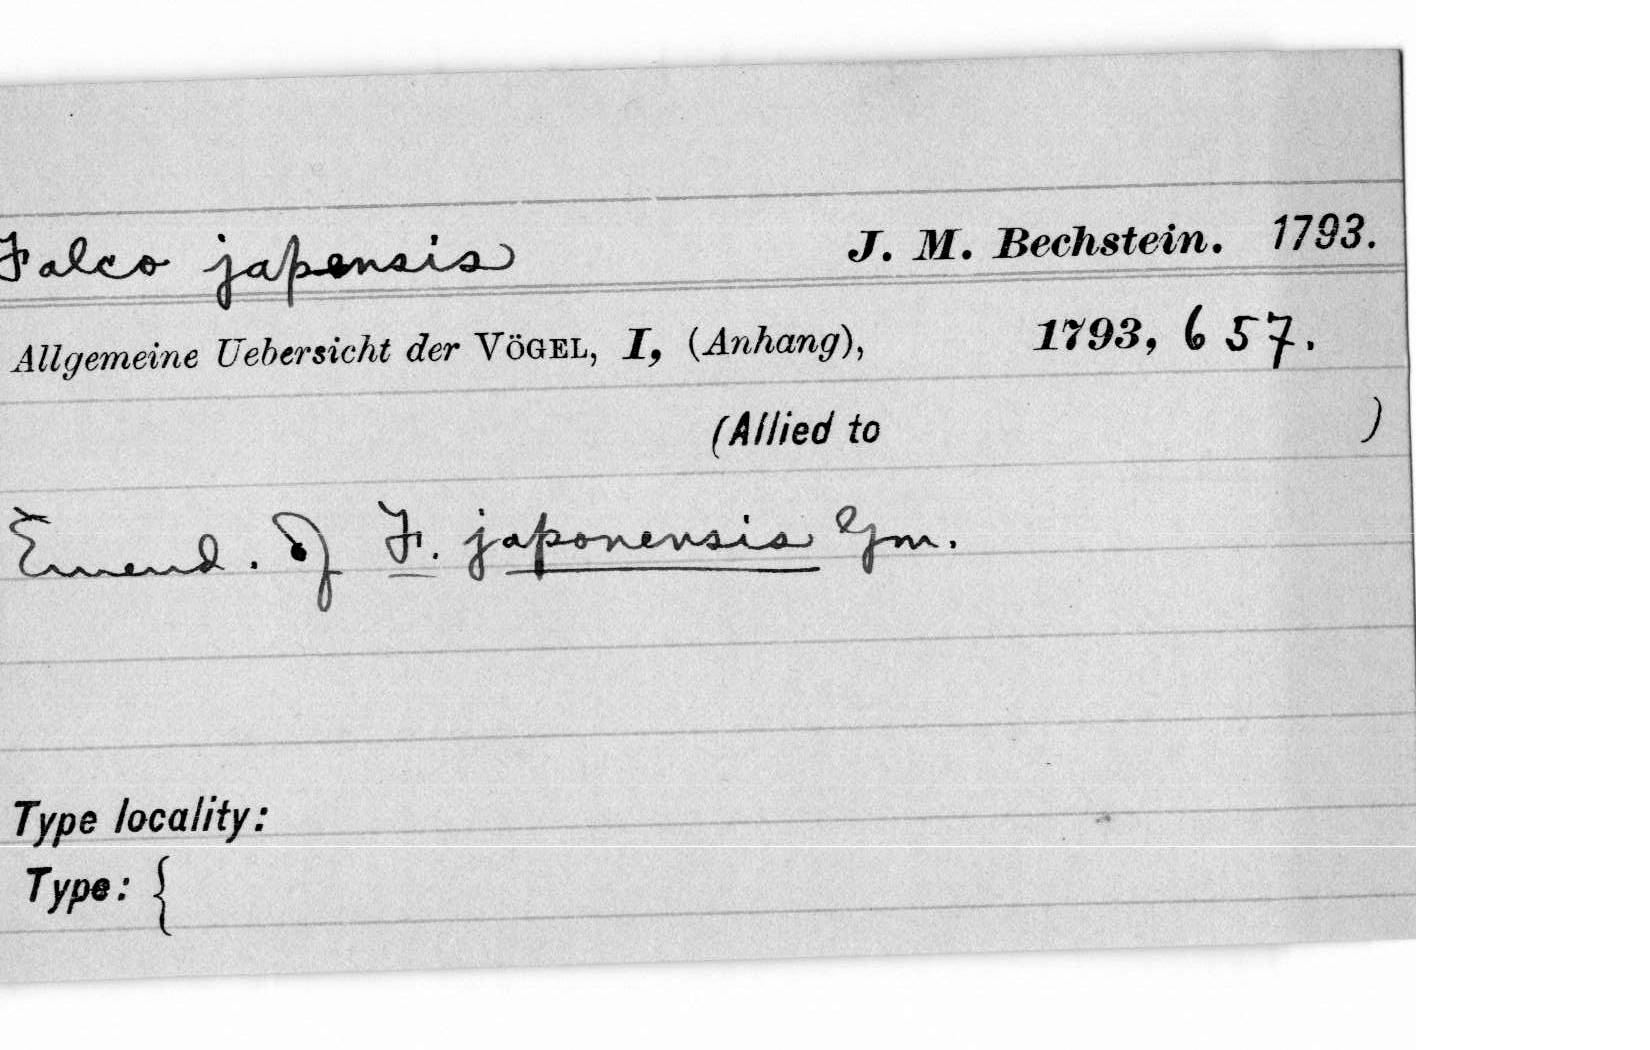 Falco japensis J. M. Bechstein. 1793.
Allgemeine Uebersicht der VÖGEL, I, (Anhang), 1793, 657.
(Allied to )
Emend. of F. japonensis Gm.
Type locality:
Type: {